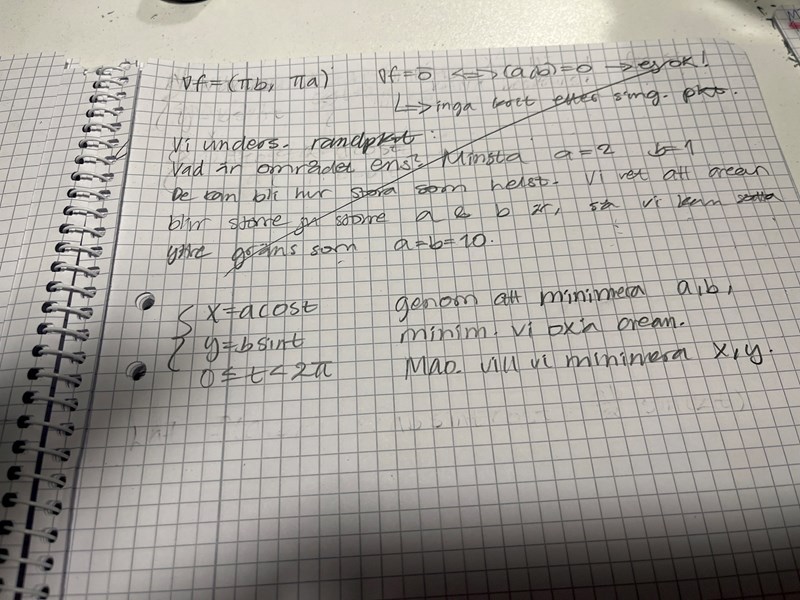 ∇f=(πb, πa)   ∇f=0̄ <=> (a,b)=0 → ej ok!
↳ inga krit eller sing. pkt.
Vi unders. randpkt:
Vad är området ens? Minsta a=2 b=1
De kan bli hur stora som helst. Vi vet att arean
blir större ju större a & b är, så vi kan sätta
yttre gräns som a=b=10.
{ x=acost   genom att minimera a,b,
y=bsint   minim. vi ox'n arean.
0≤t<2π   Mao. vill vi minimera x,y.